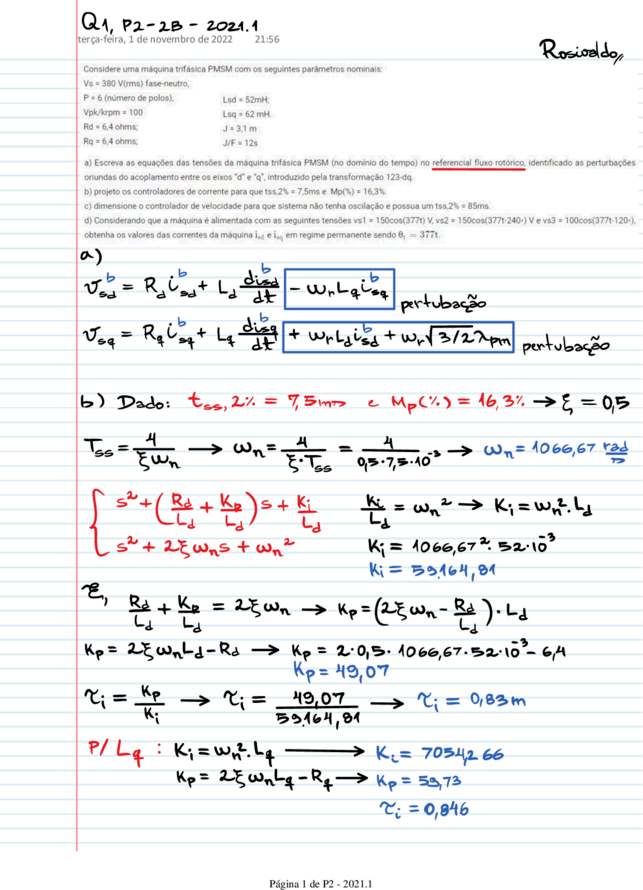 Q1, P2-2B - 2021.1
terça-feira, 1 de novembro de 2022 21:56
Rosivaldo,,
Considere uma máquina trifásica PMSM com os seguintes parâmetros nominais:
Vs = 380 V(rms) fase-neutro,
P = 6 (número de polos), Lsd = 52mH;
Vpk/krpm = 100 Lsq = 62 mH.
Rd = 6,4 ohms; J = 3,1 m
Rq = 6,4 ohms; J/F = 12s
a) Escreva as equações das tensões da máquina trifásica PMSM (no domínio do tempo) no referencial fluxo rotórico, identificado as perturbações
oriundas do acoplamento entre os eixos "d" e "q", introduzido pela transformação 123-dq.
b) projeto os controladores de corrente para que tss,2% = 7,5ms e Mp(%) = 16,3%.
c) dimensione o controlador de velocidade para que sistema não tenha oscilação e possua um tss,2% = 85ms.
d) Considerando que a máquina é alimentada com as seguintes tensões vs1 = 150cos(377t) V, vs2 = 150cos(377t-240◦) V e vs3 = 100cos(377t-120◦),
obtenha os valores das correntes da máquina i_sd e i_sq em regime permanente sendo θ_r = 377t.
a)
v_sd^b = R_d i_sd^b + L_d di_sd^b/dt - ω_r L_q i_sq^b pertubação
v_sq^b = R_q i_sq^b + L_q di_sq^b/dt + ω_r L_d i_sd^b + ω_r √(3/2) λ_pm pertubação
b) Dado: t_ss, 2% = 7,5ms e Mp(%) = 16,3% → ξ = 0,5
T_ss = 4/(ξω_n) → ω_n = 4/(ξ·T_ss) = 4/(0,5·7,5·10^-3) → ω_n = 1066,67 rad/s
s² + (R_d/L_d + K_p/L_d)s + K_i/L_d K_i/L_d = ω_n² → K_i = ω_n².L_d
s² + 2ξω_n s + ω_n² K_i = 1066,67². 52·10^-3
K_i = 59164,81
E, R_d/L_d + K_p/L_d = 2ξω_n → K_p = (2ξω_n - R_d/L_d)·L_d
K_p = 2ξω_n L_d - R_d → K_p = 2·0,5·1066,67·52·10^-3 - 6,4
K_p = 49,07
τ_i = K_p/K_i → τ_i = 49,07/59164,81 → τ_i = 0,83m
P/ L_q : K_i = ω_n².L_q → K_i = 70542,66
K_p = 2ξω_n L_q - R_q → K_p = 59,73
τ_i = 0,846
Página 1 de P2 - 2021.1